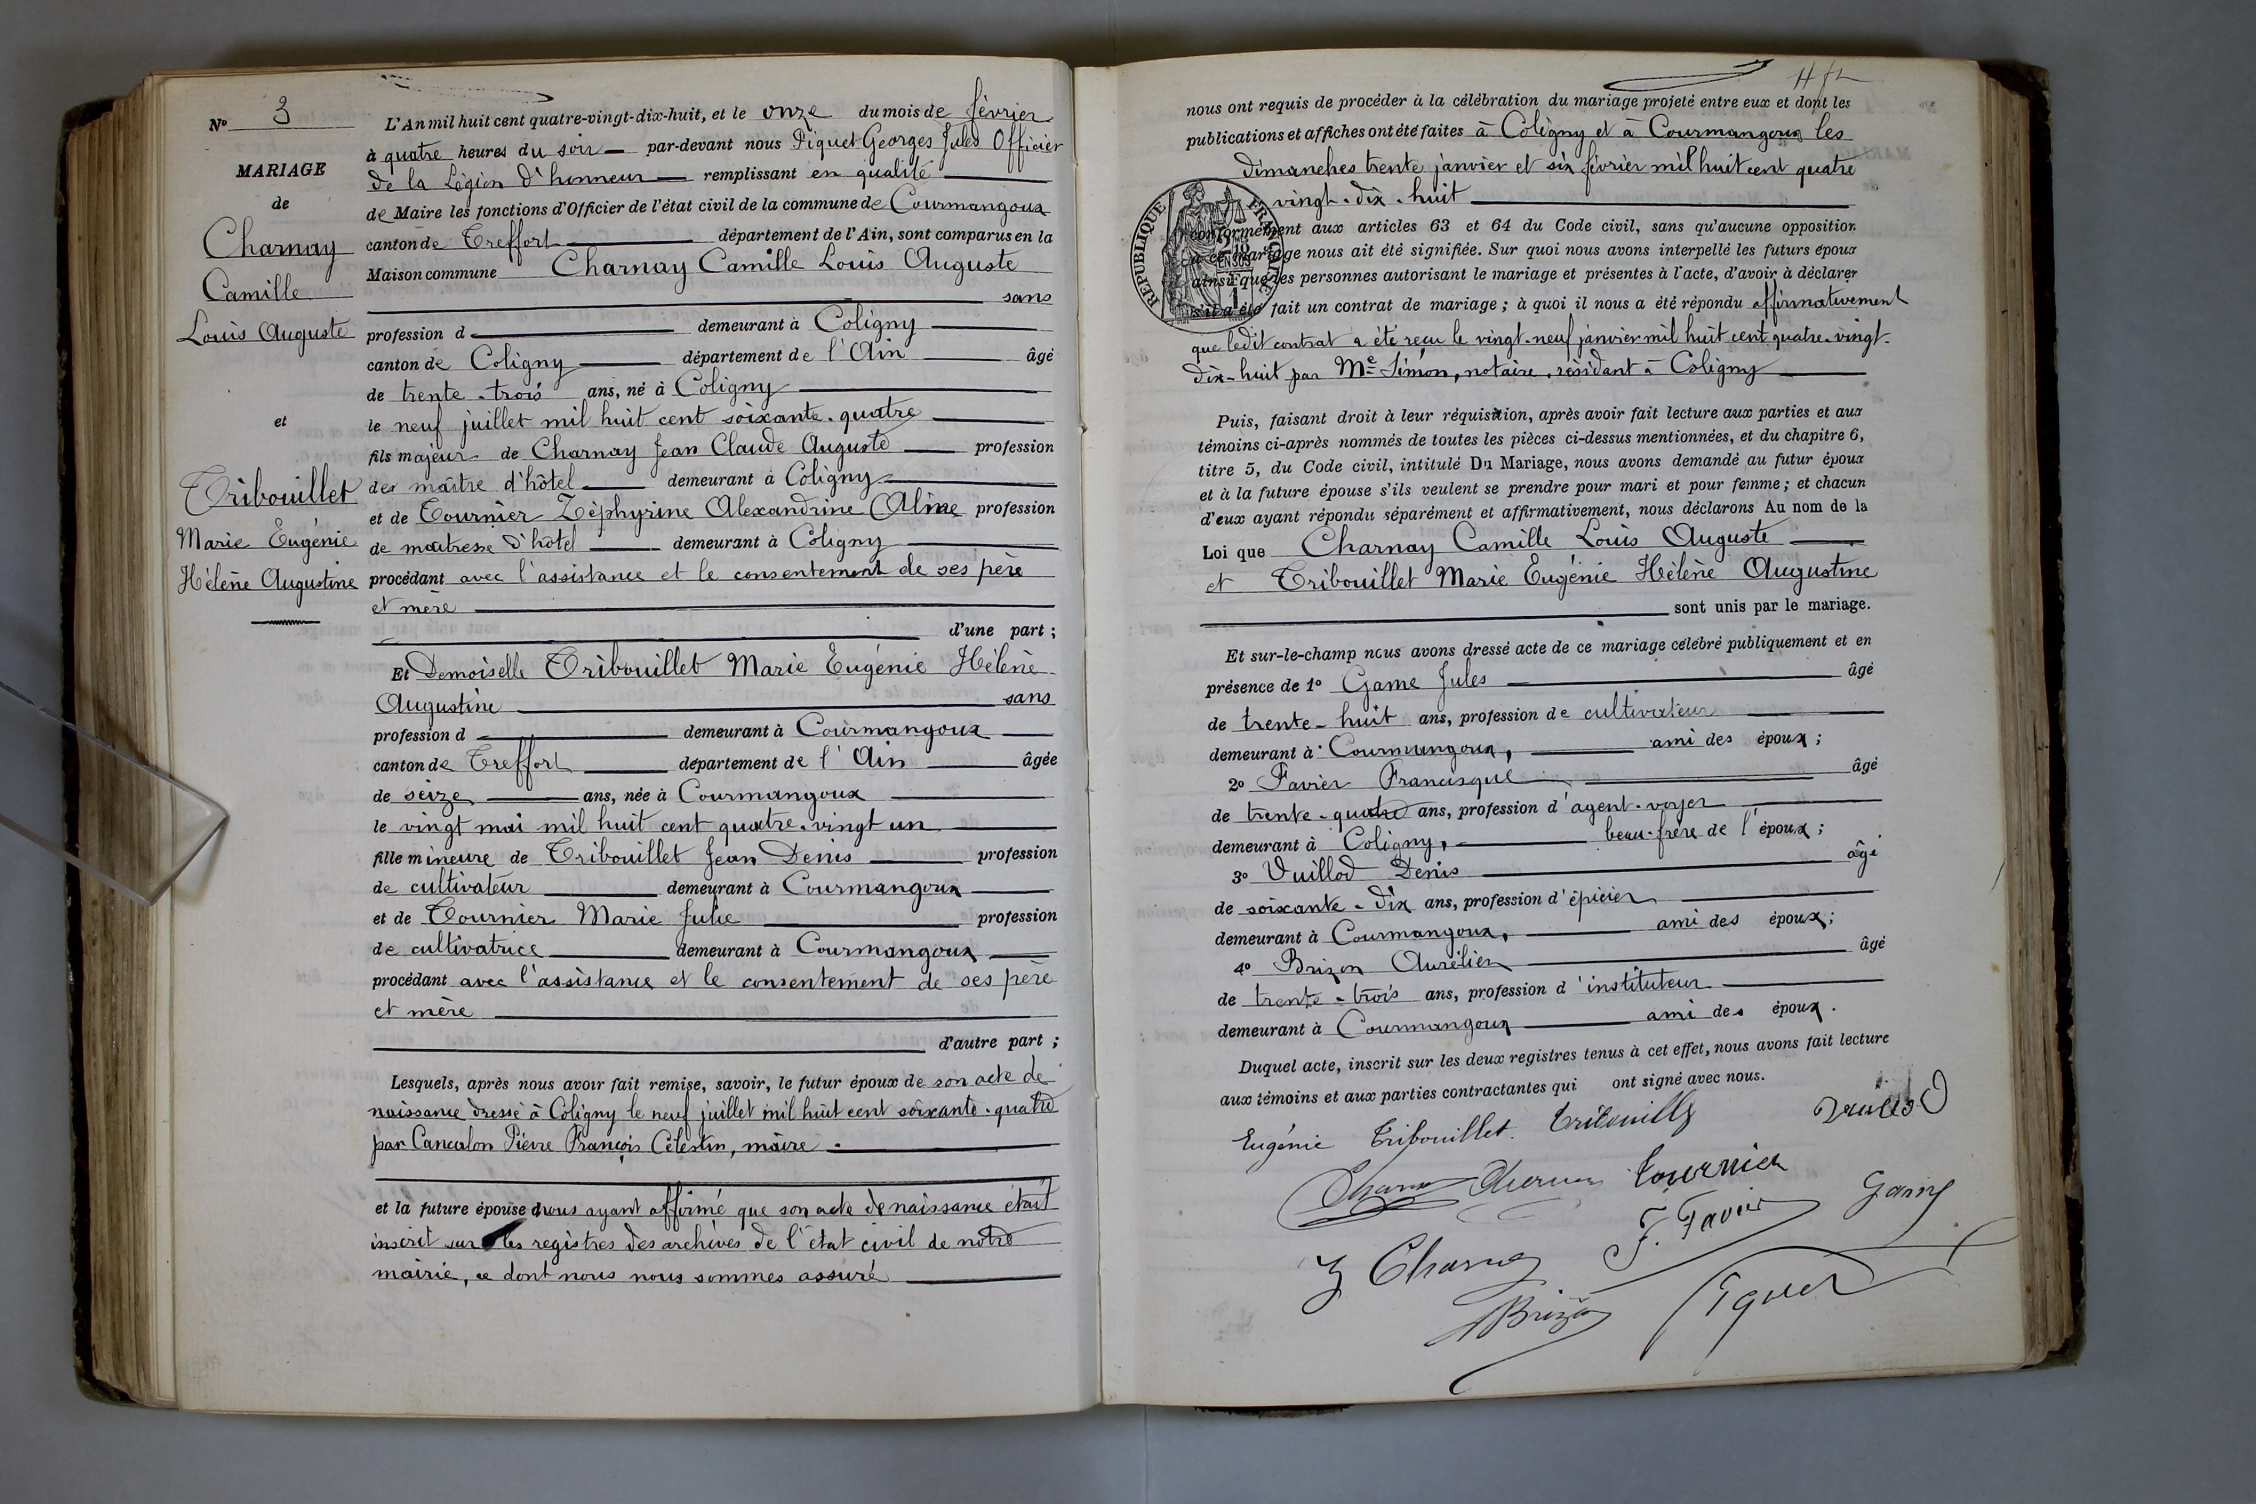 N° 3
MARIAGE
de
Charnay
Camille
Louis Auguste
et
Tribouillet
Marie Eugénie
Hélène Augustine
L'An mil huit cent quatre-vingt-dix-huit, et le onze du mois de février
à quatre heures du soir par-devant nous Piquet Georges Jules Officier
de la Légion d'honneur remplissant en qualité
de Maire les fonctions d'Officier de l'état civil de la commune de Courmangoux
canton de Treffort département de l'Ain, sont comparus en la
Maison commune Charnay Camille Louis Auguste
sans
profession d demeurant à Coligny
canton de Coligny département de l'Ain âgé
de trente-trois ans, né à Coligny
le neuf juillet mil huit cent soixante-quatre
fils majeur de Charnay Jean Claude Auguste profession
de maître d'hôtel demeurant à Coligny
et de Tournier Zéphyrine Alexandrine Aline profession
de maîtresse d'hôtel demeurant à Coligny
procédant avec l'assistance et le consentement de ses père
et mère
d'une part ;
Et Demoiselle Tribouillet Marie Eugénie Hélène
Augustine sans
profession d demeurant à Courmangoux
canton de Treffort département de l'Ain âgée
de seize ans, née à Courmangoux
le vingt mai mil huit cent quatre-vingt un
fille mineure de Tribouillet Jean Denis profession
de cultivateur demeurant à Courmangoux
et de Tournier Marie Julie profession
de cultivatrice demeurant à Courmangoux
procédant avec l'assistance et le consentement de ses père
et mère
d'autre part ;
Lesquels, après nous avoir fait remise, savoir, le futur époux de son acte de
naissance dressé à Coligny le neuf juillet mil huit cent soixante-quatre
par Cancalon Pierre François Célestin, maire
et la future épouse nous ayant affirmé que son acte de naissance était
inscrit sur les registres des archives de l'état civil de notre
mairie, ce dont nous nous sommes assuré
nous ont requis de procéder à la célébration du mariage projeté entre eux et dont les
publications et affiches ont été faites à Coligny et à Courmangoux les
dimanches trente janvier et six février mil huit cent quatre
vingt-dix-huit
RÉPUBLIQUE FRANÇAISE
conformément aux articles 63 et 64 du Code civil, sans qu'aucune opposition
à ce mariage nous ait été signifiée. Sur quoi nous avons interpellé les futurs époux
ainsi que les personnes autorisant le mariage et présentes à l'acte, d'avoir à déclarer
s'il a été fait un contrat de mariage ; à quoi il nous a été répondu affirmativement
que ledit contrat a été reçu le vingt-neuf janvier mil huit cent quatre-vingt-
dix-huit par Me Simon, notaire, résidant à Coligny
Puis, faisant droit à leur réquisition, après avoir fait lecture aux parties et aux
témoins ci-après nommés de toutes les pièces ci-dessus mentionnées, et du chapitre 6,
titre 5, du Code civil, intitulé Du Mariage, nous avons demandé au futur époux
et à la future épouse s'ils veulent se prendre pour mari et pour femme ; et chacun
d'eux ayant répondu séparément et affirmativement, nous déclarons Au nom de la
Loi que Charnay Camille Louis Auguste
et Tribouillet Marie Eugénie Hélène Augustine
sont unis par le mariage.
Et sur-le-champ nous avons dressé acte de ce mariage célébré publiquement et en
présence de 1° Game Jules âgé
de trente-huit ans, profession de cultivateur
demeurant à Courmangoux, ami des époux ;
2° Favier Francisque âgé
de trente-quatre ans, profession d'agent-voyer
demeurant à Coligny, beau-frère de l'époux ;
3° Vuillod Denis âgé
de soixante-dix ans, profession d'épicier
demeurant à Courmangoux, ami des époux ;
4° Brizon Aurélien âgé
de trente-trois ans, profession d'instituteur
demeurant à Courmangoux ami des époux.
Duquel acte, inscrit sur les deux registres tenus à cet effet, nous avons fait lecture
aux témoins et aux parties contractantes qui ont signé avec nous.
Eugénie Tribouillet. Tribouillet
Tournier
F. Favier Game
Brizon Piquet